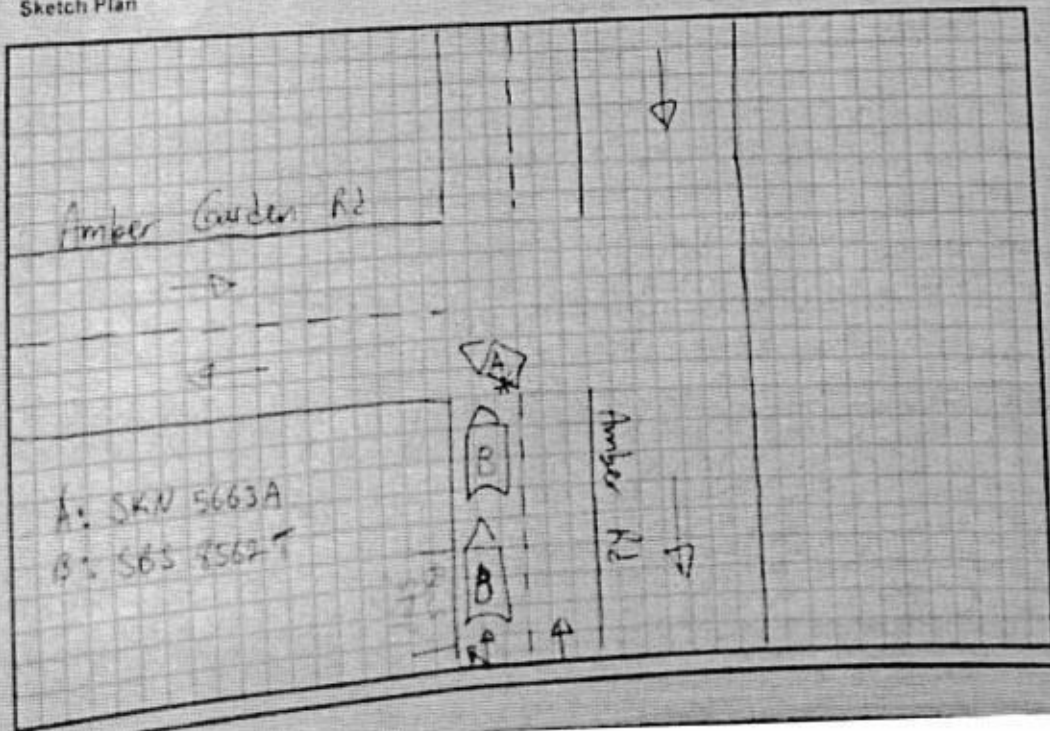 Sketch Plan
Amber Garden Rd
A
B
Amber Rd
A: SKN 5663A
B: SBS 8562T
B